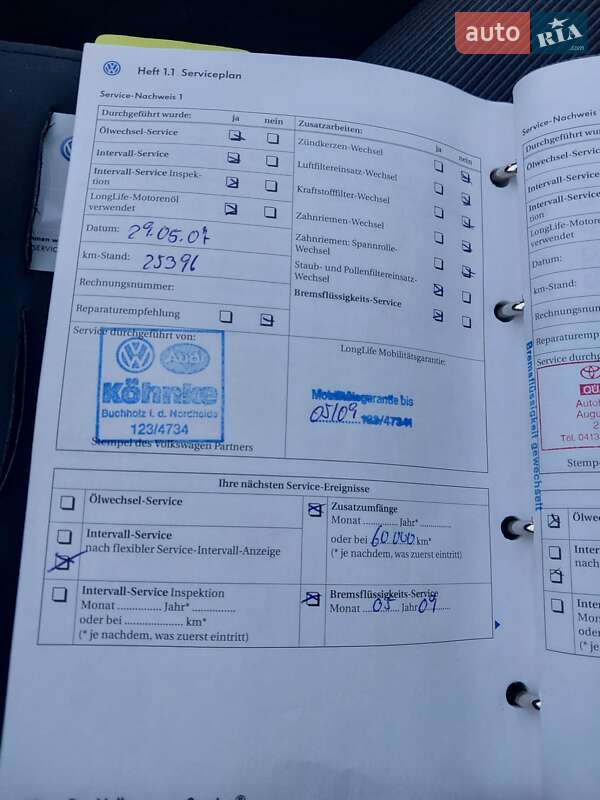 auto RIA .com
Heft 1.1 Serviceplan
Service-Nachweis 1
Durchgeführt wurde: ja nein
Ölwechsel-Service
Intervall-Service
Intervall-Service Inspek-
tion
LongLife-Motorenöl
verwendet
Datum: 29.05.07
km-Stand: 25396
Rechnungsnummer:
Reparaturempfehlung
Service durchgeführt von:
Audi
Köhnke
Buchholz i. d. Nordheide
123/4734
Stempel des Volkswagen Partners
Zusatzarbeiten: ja nein
Zündkerzen-Wechsel
Luftfiltereinsatz-Wechsel
Kraftstofffilter-Wechsel
Zahnriemen-Wechsel
Zahnriemen: Spannrolle-
Wechsel
Staub- und Pollenfiltereinsatz-
Wechsel
Bremsflüssigkeits-Service
LongLife Mobilitätsgarantie:
Mobilitätsgarantie bis
05/09 123/4734
Ihre nächsten Service-Ereignisse
Ölwechsel-Service
Intervall-Service
nach flexibler Service-Intervall-Anzeige
Intervall-Service Inspektion
Monat ............. Jahr* .............
oder bei ................... km*
(* je nachdem, was zuerst eintritt)
Zusatzumfänge
Monat ............. Jahr* .............
oder bei 60.000 km*
(* je nachdem, was zuerst eintritt)
Bremsflüssigkeits-Service
Monat 05 Jahr 09
Service-Nachweis
Durchgeführt wurde
Ölwechsel-Service
Intervall-Service
Intervall-Service
tion
LongLife-Motorenöl
verwendet
Datum:
km-Stand:
Rechnungsnumm
Reparaturempfe
Service durchg
Bremsflüssigkeit gewechselt
Tel. 0413
Stempe
Ölwec
Inter
nach
Inter
Mona
oder
(* je n